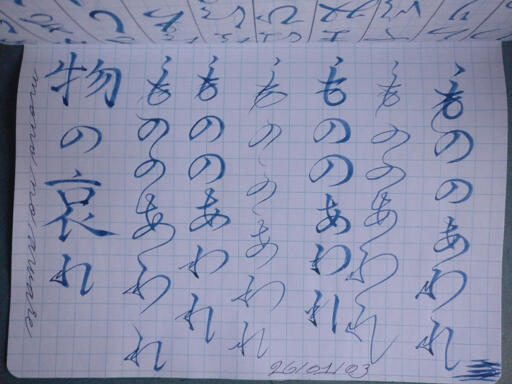 もののあわれ
もののあわれ
もののあわれ
もののあわれ
もののあわれ
もののあわれ
物の哀れ
mono/no/aware
26/01/03